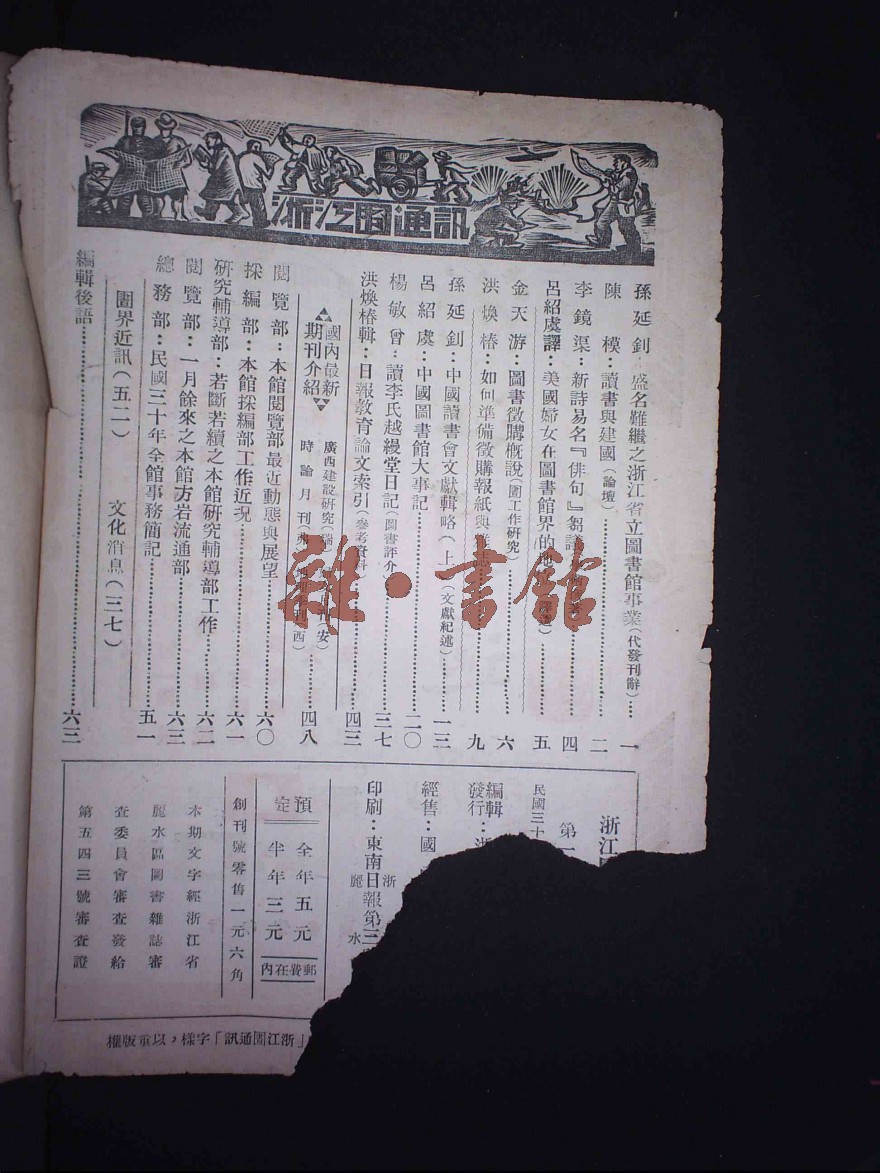 浙江圕通訊
孫延釗：盛名難繼之浙江省立圖書館事業（代發刊辭）……一
陳 模：讀書與建國（論壇）……二
李鏡渠：新詩易名『俳句』芻議……四
呂紹虞譯：美國婦女在圖書館界的……五
金天游：圖書徵購概說（圕工作研究）……六
洪煥椿：如何準備徵購報紙與……九
孫延釗：中國讀書會文獻輯略（上）（文獻紀述）……一三
呂紹虞：中國圖書館大事記……二〇
楊敏曾：讀李氏越縵堂日記（圖書評介）……三七
洪煥椿輯：日報教育論文索引（參考資料）……四三
國內最新期刊介紹
廣西建設研究（瑞）（安）
時論月刊（西）……四八
閱覽部：本館閱覽部最近動態與展望……六〇
採編部：本館採編部工作近況……六一
研究輔導部：若斷若續之本館研究輔導部工作……六二
閱覽部：一月餘來之本館方岩流通部……六三
總務部：民國三十年全館事務簡記……五一
圕界近訊（五二） 文化消息（三七）
編輯後語……六三
浙江
第一
民國三十
編輯
發行：浙
經售：國
印刷：東南日報第三
浙
麗水
預定
全年五元
半年三元
郵費在內
創刊號零售一元六角
本期文字經浙江省
麗水區圖書雜誌審
查委員會審查發給
第五四三號審查證
「浙江圕通訊」字樣，以重版權
雜·書館